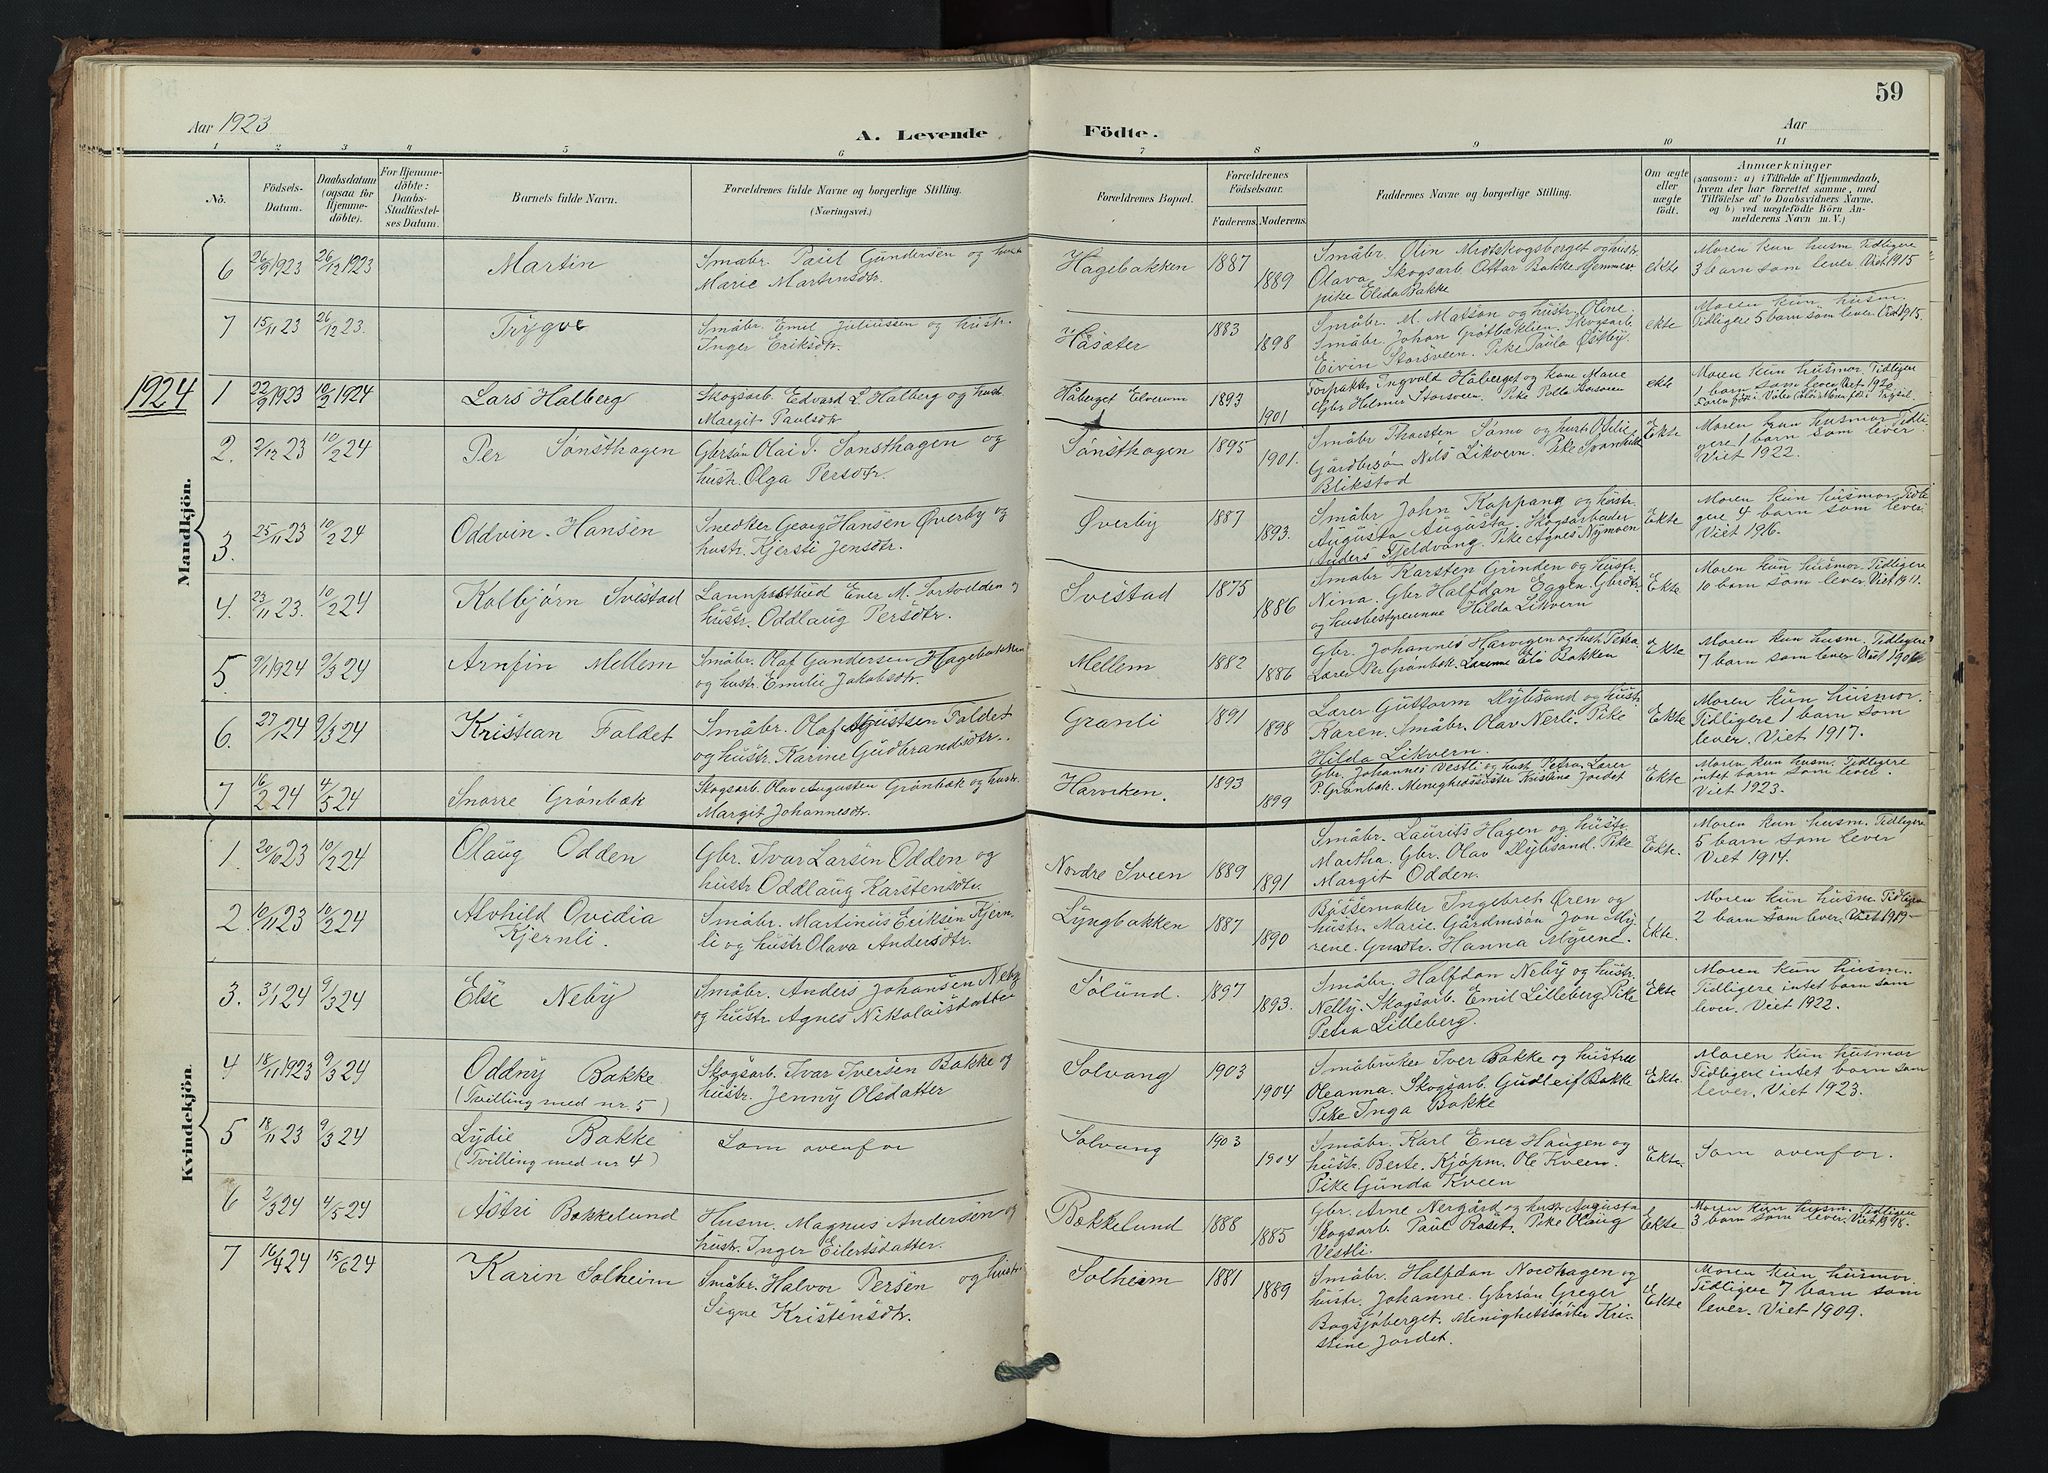 59
Aar 1923
A. Levende
Födte.
Aar
1 2 3 4 5 6 7 8 9 10 11
No.
Födsels-Datum.
Daabsdatum (ogsaa for Hjemmedöbte).
For Hjemmedöbte: Daabs-Stadfæstelses Datum.
Barnets fulde Navn.
Forældrenes fulde Navne og borgerlige Stilling.
(Næringsvei.)
Forældrenes Bopæl.
Forældrenes Födselsaar.
Faderens. Moderens.
Faddernes Navne og borgerlige Stilling.
Om ægte eller uægte födt.
Anmærkninger
(saasom: a) i Tilfælde af Hjemmedaab, hvem der har forrettet samme, med Tilföielse af to Daabsvidners Navne, og b) ved uægtefödte Börn Anmelderens Navn m. V.)
Mandkjön.
6 26/9 1923 26/12 1923 Martin
Småbr. Paul Gundersen og hustr.
Marie Martinsdtr.
Hagebakken 1887 1889
Småbr. Olin Midtskogsberget og hustr.
Olava, Skogsarb. Ottar Bakke. Hjemmev.
pike Elida Bakke
ekte
Moren kun husm. Tidligere
3 barn som lever. Viet 1915
7 15/11 23 26/12 23. Trygve
Småbr. Emil Juliussen og hustr.
Inger Eriksdtr.
Håsæter 1883 1898
Småbr. M. Matson og hustr. Oline.
Småbr. Johan Skogsarb.
Eivin Storsveen. Pike Paula Østby.
ekte
Moren kun husm.
Tidligere 5 barn som lever. Viet 1915.
1924
1 22/9 1923 10/2 1924 Lars Halberg
Skogsarb. Edvard L. Halberg og hustr.
Margit Paulsdtr.
Håberget Elverum 1893 1901
Forpakter Ingvald Håberget og kone Marie
Gbr. Hilmer Storsveen. Pike
ekte
Moren kun husmor. Tidligere
1 barn som lever. Viet 1920
2. 2/12 23 10/2 24 Per Sønsthagen
Gbrsøn Olai T. Sønsthagen og
hustr. Olga Persdtr.
Sønsthagen 1895 1901.
Småbr. Thorsten Sømo og hustr. Otilie
Gårdbrsøn Nils Likvern. Pike
Blikstad
Ekte
Moren kun husmor. Tidli-
gere 1 barn som lever
Viet 1922.
3. 25/11 23 10/2 24 Oddvin Hansen
Snedker Georg Hansen Øverby og
hustr. Kjersti Jensdtr.
Øverby 1887 1893.
Småbr. John Koppang og hustr.
Augusta Augusta. Skogsarbeider
Anders Fjeldvang. Pike Agnes Nymoen
Ekte
Moren kun husmor. Tidli-
gere 4 barn som lever.
Viet 1916.
4. 23/11 23. 10/2 24 Kolbjørn Svestad
Lannpostbud Ener M. Sortvedden og
hustr. Oddlaug Persdtr.
Svestad 1875 1886
Småbr. Karsten Grinden og hustr.
Nina. Gbr. Halfdan Eggen. Gbrdtr.
og husbestyrerinne Hilda Likvern
Ekte
Moren kun husmor. Tidligere
10 barn som lever. Viet 1911.
5. 9/1 1924 9/3 24 Arnfin Mellem
Småbr. Olaf Gundersen Hagebakken
og hustr. Emilie Jakobsdtr.
Mellem 1882 1886
Gbr. Johannes Harvigen og hustr. Petra
Lærer Per Grønbæk. Lærerinne Eli Bakken
Ekte
Moren kun husm. Tidligere
7 barn som lever. Viet
6. 27/1 24 9/3 24 Kristian Faldet
Småbr. Olaf Agustsen Faldet
og hustr. Karine Gudbrandsdtr.
Granli 1891 1898
Lærer Guttorm Dybsand og hustr.
Karen. Småbr. Olav Nerle. Pike
Hilda Likvern.
Ekte
Moren kun husmor.
Tidligere 1 barn som
lever. Viet 1917.
7 16/2 24 4/5 24 Snorre Grønbæk
Skogsarb. Olav Augusten Grønbæk og hustr.
Margit Johannesdtr.
Harviken. 1893 1899
Gbr. Johannes Vestli og hustr. Petra. Lærer
P. Grønbæk. Menighedssøster Kristine Jordet
Ekte
Moren kun husm. Tidligere
intet barn som lever.
Viet 1923.
Kvindekjön.
1. 20/10 23 10/2 24 Olaug Odden
Gbr. Ivar Larsen Odden og
hustr. Oddlaug Karstensdtr.
Nordre Sveen 1889 1891
Småbr. Laurits Hagen og hustr.
Martha. Gbr. Olav Dybsand. Pike
Margit Odden.
Ekte.
Moren kun husm. Tidligere
5 barn som lever
Viet 1914.
2. 10/11 23 10/2 24 Alvhild Ovidia
Kjernli.
Småbr. Martinus Eriksen Kjern-
li og hustr. Olava Andersdtr.
Lyngbakken 1887 1890
Bøssematter Ingebret Øren og
hustr. Marie. Gårdmsøn Jon My-
rene. Gmdtr. Hanna Myrene.
Ekte.
Moren kun husm. Tidligere
2 barn som lever. Viet 1919
3. 3/1 24 9/3 24 Else Neby
Småbr. Anders Johansen Neby
og hustr. Agnes Nikolaisdatter
Sølund. 1897 1893.
Småbr. Halfdan Neby og hustr.
Nelly. Skogsarb. Emil Lilleberg. Pike
Petra Lilleberg.
Ekte
Moren kun husm.
Tidligere intet barn som
lever. Viet 1922.
4 18/11 1923 9/3 24 Oddny Bakke
(Tvilling med nr. 5)
Skogsarb. Ivar Iversen Bakke og
hustr. Jenny Olsdatter
Solvang 1903 1904
Småbruker Iver Bakke og hustru
Oleanna. Skogsarb. Gudleif Bakke
Pike Inga Bakke
Ekte.
Moren kun husmor
Tidligere intet barn som
lever. Viet 1923.
5 18/11 23 9/3 24 Lydie Bakke
(Tvilling med nr 4)
Som ovenfor
Solvang 1903 1904
Småbr. Karl Ener Haugen og
hustr. Berte. Kjøpm. Ole Kveen.
Pike Gunda Kveen
Ekte.
Som ovenfor.
6 2/3 24 4/5 24 Astri Bækkelund
Husm. Magnus Andersen og
hustr. Inger Eilertsdatter.
Bækkelund 1888 1885
Gbr. Arne Nergård og hustr. Augusta
Skogsarb. Paul Raset. Pike Olaug
Vestli.
Ekte
Moren kun husm. Tidligere
3 barn som lever. Viet 1918.
7 16/4 24 15/6 24 Karin Solheim
Småbr. Halvor Persen og hustr.
Signe Kristensdtr.
Solheim 1881 1889
Småbr. Halfdan Nordhagen og
hustr. Johanne. Gbrsøn Greger
Bogsjøberget. Menighetssøster Kri-
stine Jordet.
Ekte
Moren kun husmor.
Tidligere 7 barn som
lever. Viet 1909.